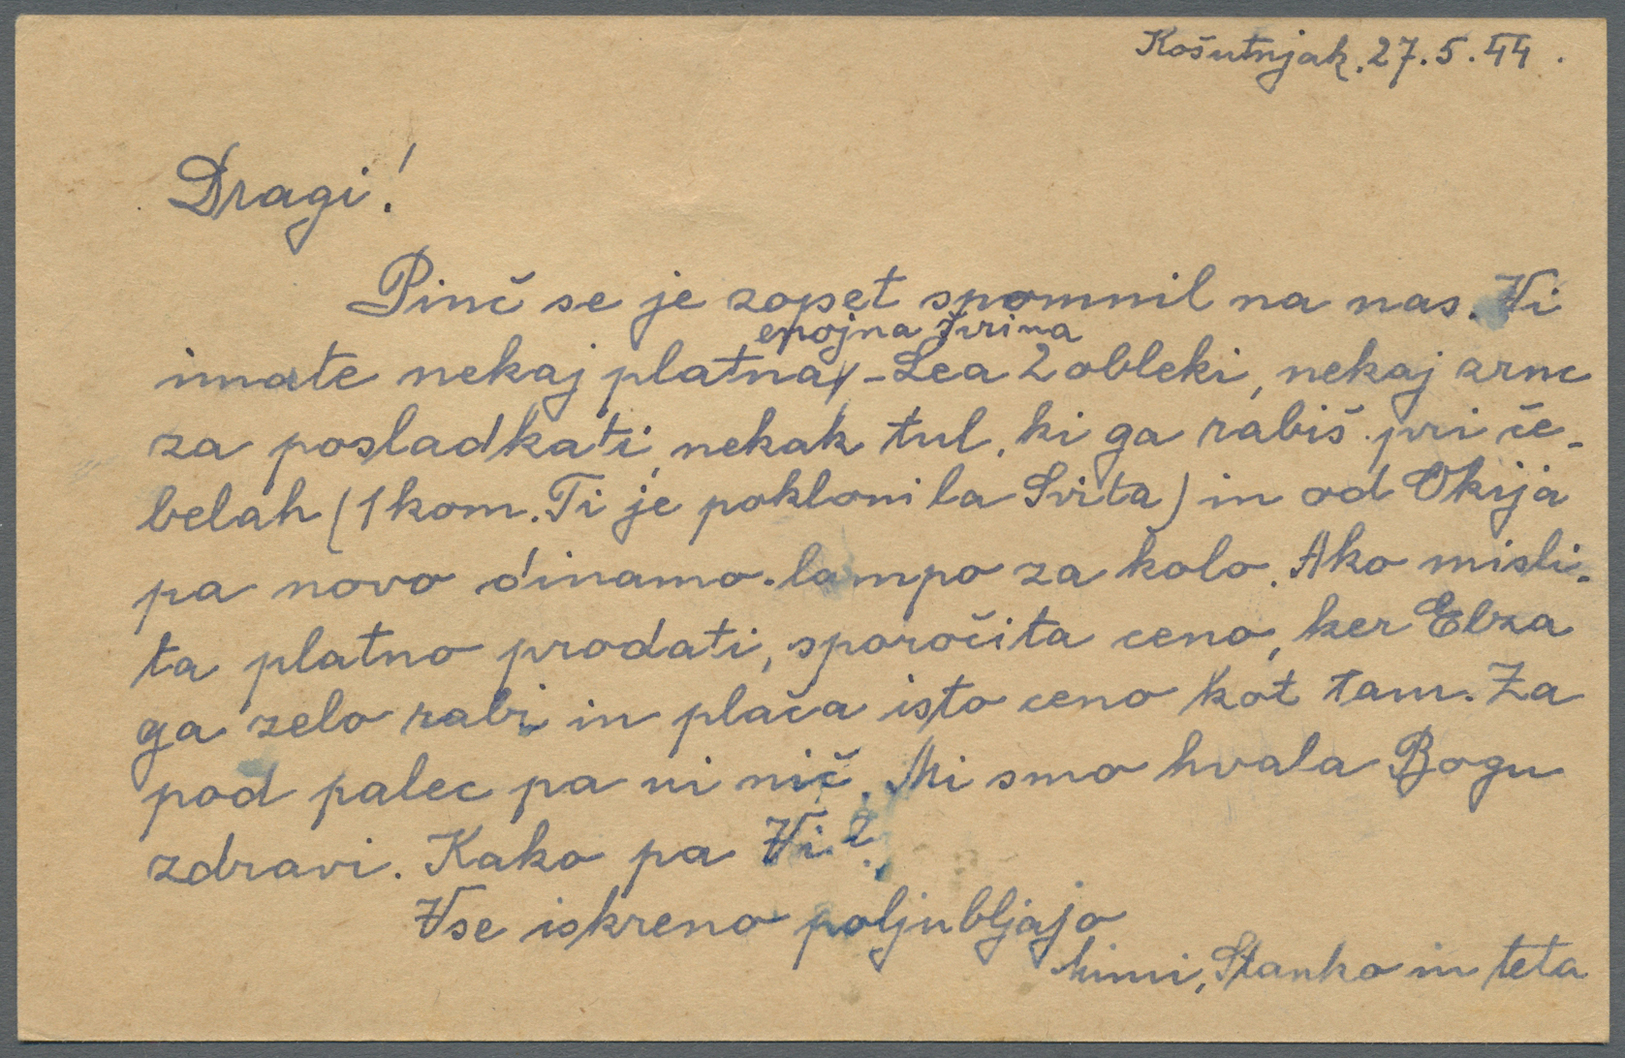 Košutnjak. 27.5.44.
Dragi!
Pinč se je zopet spomnil na nas. Vi
enojna širina
imate nekaj platna, - Lea 2 obleki, nekaj zrnc
za posladkati, nekak tul, ki ga rabiš pri če-
belah (1 kom. Ti je poklonila Svita) in od Okija
pa novo dinamo-lampo za kolo. Ako misli-
ta platno prodati, sporočita ceno, ker Elza
ga zelo rabi in plača isto ceno kot tam. Za
pod palec pa ni nič. Mi smo hvala Bogu
zdravi. Kako pa Vi?
Vse iskreno poljubljajo
Mimi, Stanko in teta